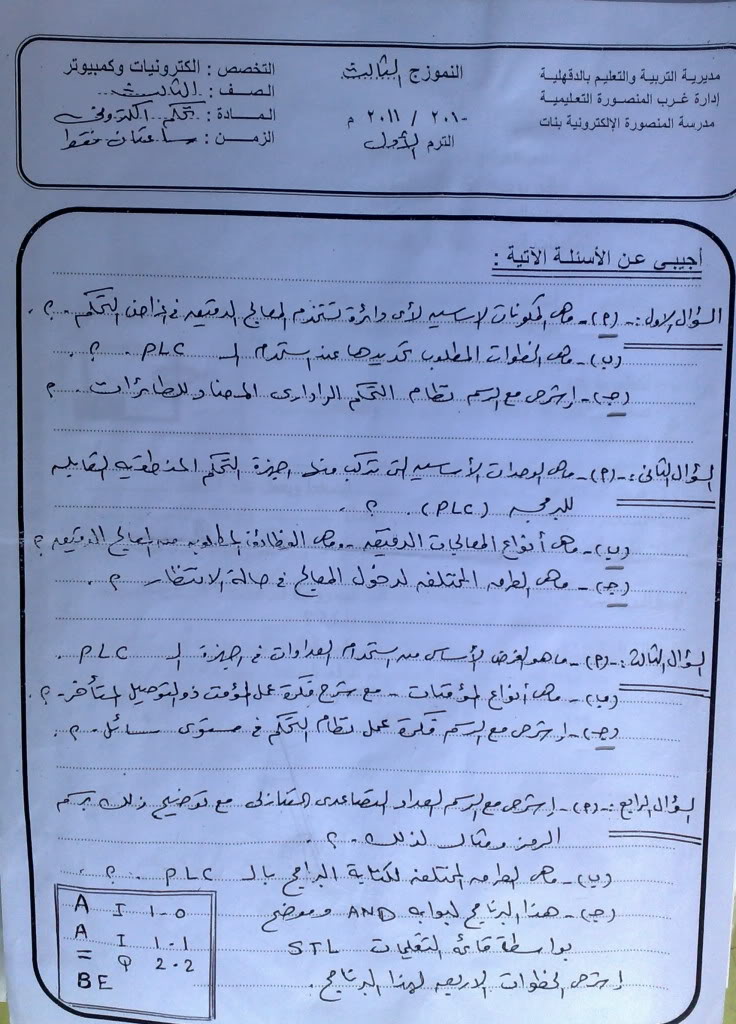 مديرية التربية والتعليم بالدقهلية
إدارة غرب المنصورة التعليمية
مدرسة المنصورة الإلكترونية بنات
النموزج الثالث
٢٠١٠ / ٢٠١١ م
الترم الأول
التخصص : الكترونيات وكمبيوتر
الصف : الثالث
المادة : تحكم الكتروني
الزمن : ساعتان فقط
أجيبى عن الأسئلة الآتية :
السؤال الاول :- (أ) - ماهى المكونات الاساسيه لأى دائرة تستخدم المعالج الدقيقه فى اغراض التحكم ؟
(ب) - ماهى الخطوات المطلوب تحديدها عند استخدام الـ PLC ؟
(جـ) - إشرحى مع الرسم نظام التحكم الرادارى المضاد للطائرات ؟
السؤال الثانى :- (أ) - ماهى الوحدات الأساسيه التى تتركب منها اجهزة التحكم المنطقيه القابله
للبرمجه (PLC) ؟
(ب) - ماهى أنواع المعالجات الدقيقه - وماهى الوظائف المطلوبه من المعالج الدقيقه ؟
(جـ) - ماهى الطرق المختلفه لدخول المعالج فى حالة الانتظار ؟
السؤال الثالث :- (أ) - ماهو الغرض الأساسى من استخدام العدادات فى اجهزة الـ PLC .
(ب) - ماهى أنواع المؤقتات - مع شرح فكرة عمل المؤقت ذو التوصيل المتأخر ؟
(جـ) - إشرحى مع الرسم فكرة عمل نظام التحكم فى مستوى سائل ؟
السؤال الرابع :- (أ) - إشرحى مع الرسم العداد التصاعدى التنازلى مع توضيح ذلك برسم
الرمز ومثال لذلك ؟
(ب) - ماهى الطرق المختلفه لكتابة البرامج بالـ PLC ؟
(جـ) - هذا البرنامج لبوابه AND وموضح
بواسطة قائمة التعليمات STL
إشرحى الخطوات الاربعه لهذا البرنامج .
A I 1.0
A I 1.1
= Q 2.2
BE